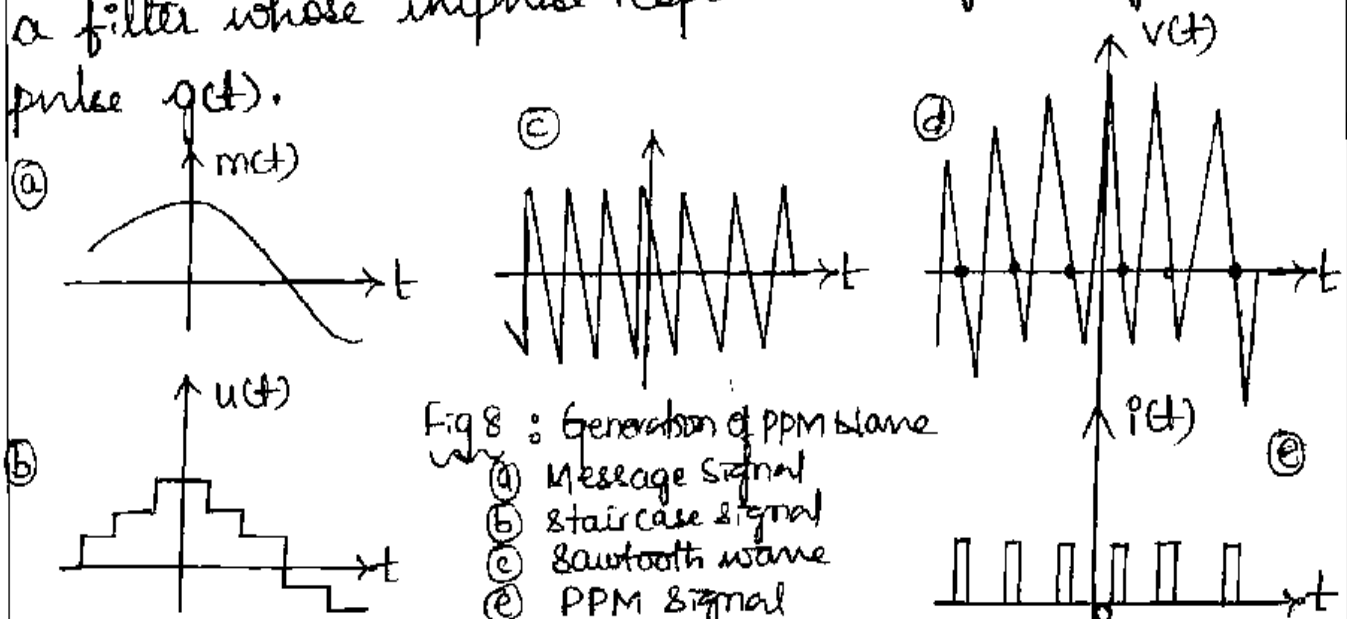 a filter whose
pulse g(t).
ⓐ
m(t)
t
ⓒ
t
ⓓ
v(t)
t
ⓑ
u(t)
t
Fig 8 : Generation of PPM Wave
ⓐ Message Signal
ⓑ Staircase signal
ⓒ Sawtooth wave
ⓔ PPM Signal
i(t)
ⓔ
t
0